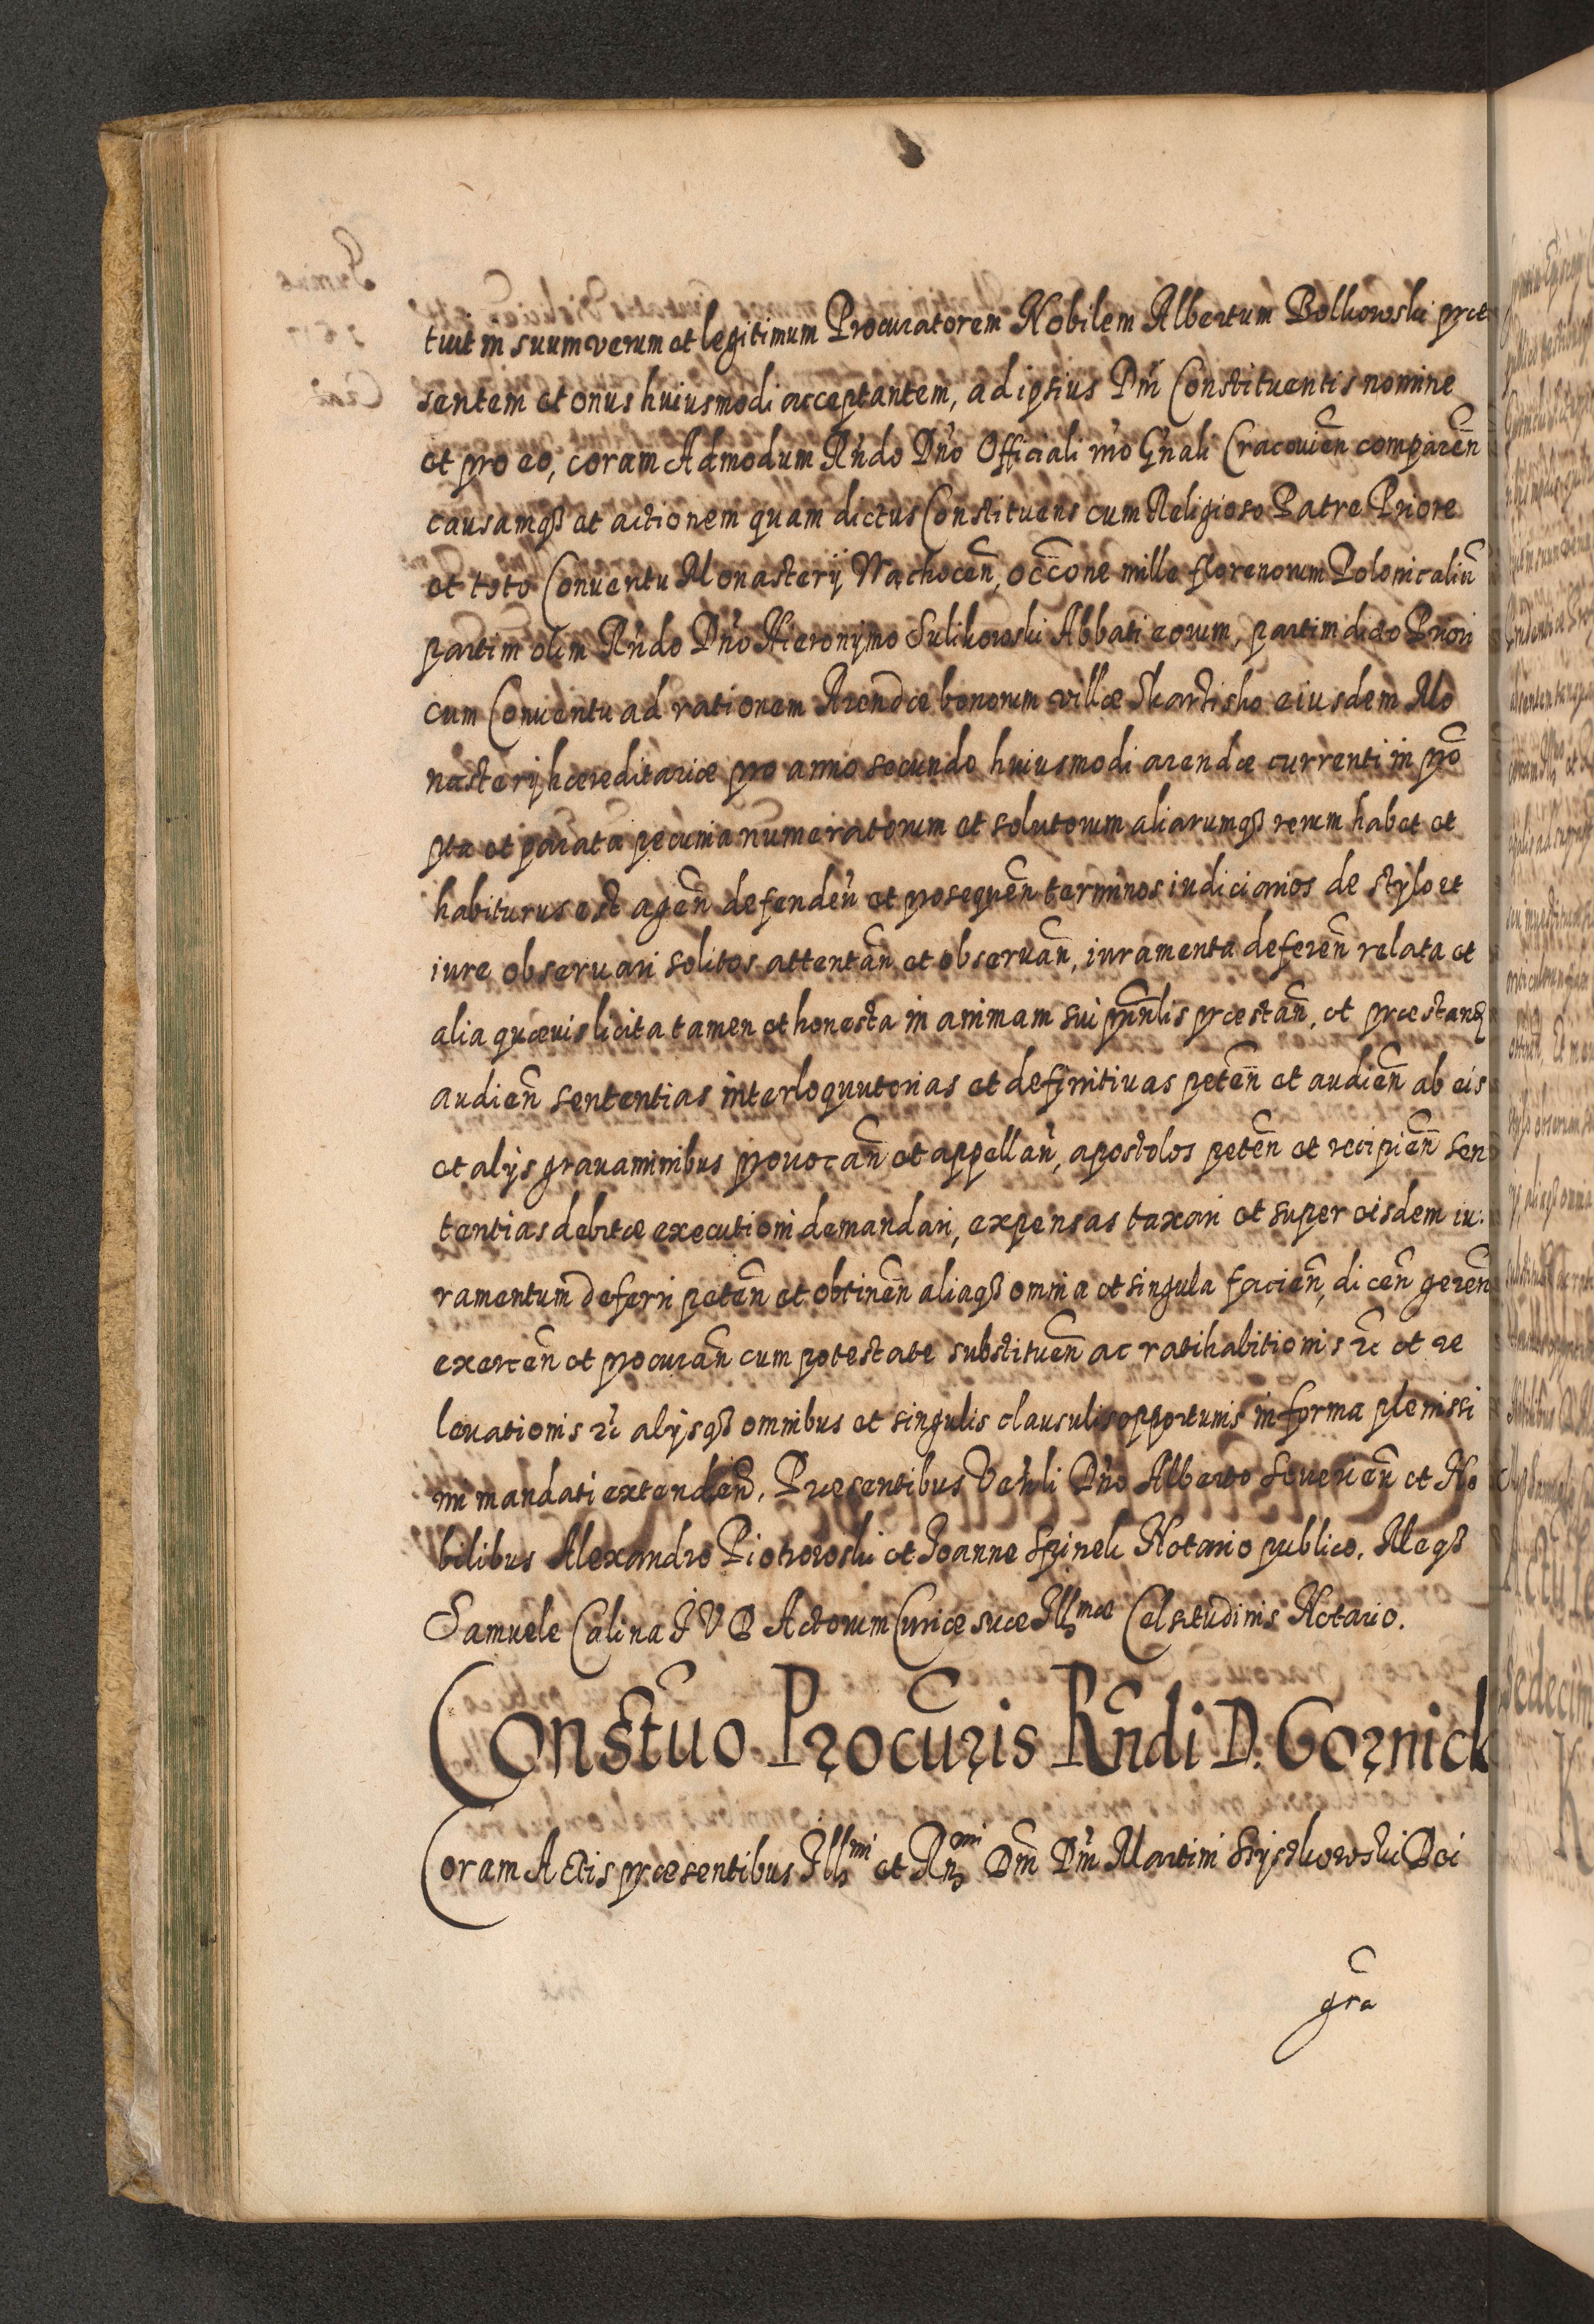 tuit in suum verum et legitimum Procuratorem Nobilem Albertum Bolkowski præ
sentem et onus huiusmodi acceptantem, ad ipsius Dni Constituentis nomine
et pro eo, coram Admodum Rndo Dno Officiali nro Gnali Cracouien comparen
causamqʒ et actionem quam dictus Constituens cum Religioso Patre Priore
et toto Conuentu Monasterij Wachocen, occone mille florenorum Polonicaliu
partim olim Rndo Dno Hieronymo Sulikowski Abbati eorum, partim dicto Priori
cum Conuentu ad rationem Arendæ bonorum villæ Skartisko eiusdem Mo
nasterij hæreditariæ pro anno secundo huiusmodi arendæ currenti in pro
pta et parata pecunia numeratorum et solutorum aliarumqʒ rerum habet et
habiturus est agen defenden et prosequen terminos iudiciarios de stylo et
iure obseruari solitos attentan et obseruan, iuramenta deferen relata et
alia quæuis licita tamen et honesta in animam sui prinlis præstan, et præstand
audien sententias interloquutorias et definitiuas peten et audien ab eis
et alijs grauaminibus prouocan et appellan, apostolos peten et recipien sen
tentias debitæ executioni demandari, expensas taxari et super eisdem iu:
ramentum deferri peten et obtinen aliaqʒ omnia et singula facien, dicen geren
exercen et procuran cum potestate substituen ac ratihabitionis &c et re
leuationis &c alijsqʒ omnibus et singulis clausulis opportunis in forma plenissi
mi mandati extenden. Præsentibus Venli Dno Alberto Seuerien et No
bilibus Alexandro Piotrowski et Joanne Spinek Notario publico. Meqʒ
Samuele Calina J V D Actorum Curiæ suæ Illmæ Celsitudinis Notario.
Constuo Procuris Rndi D. Gornick
Coram Actis præsentibus Illmi et Rnmi Dni Dni Martini Szyszkowski Dei
gra